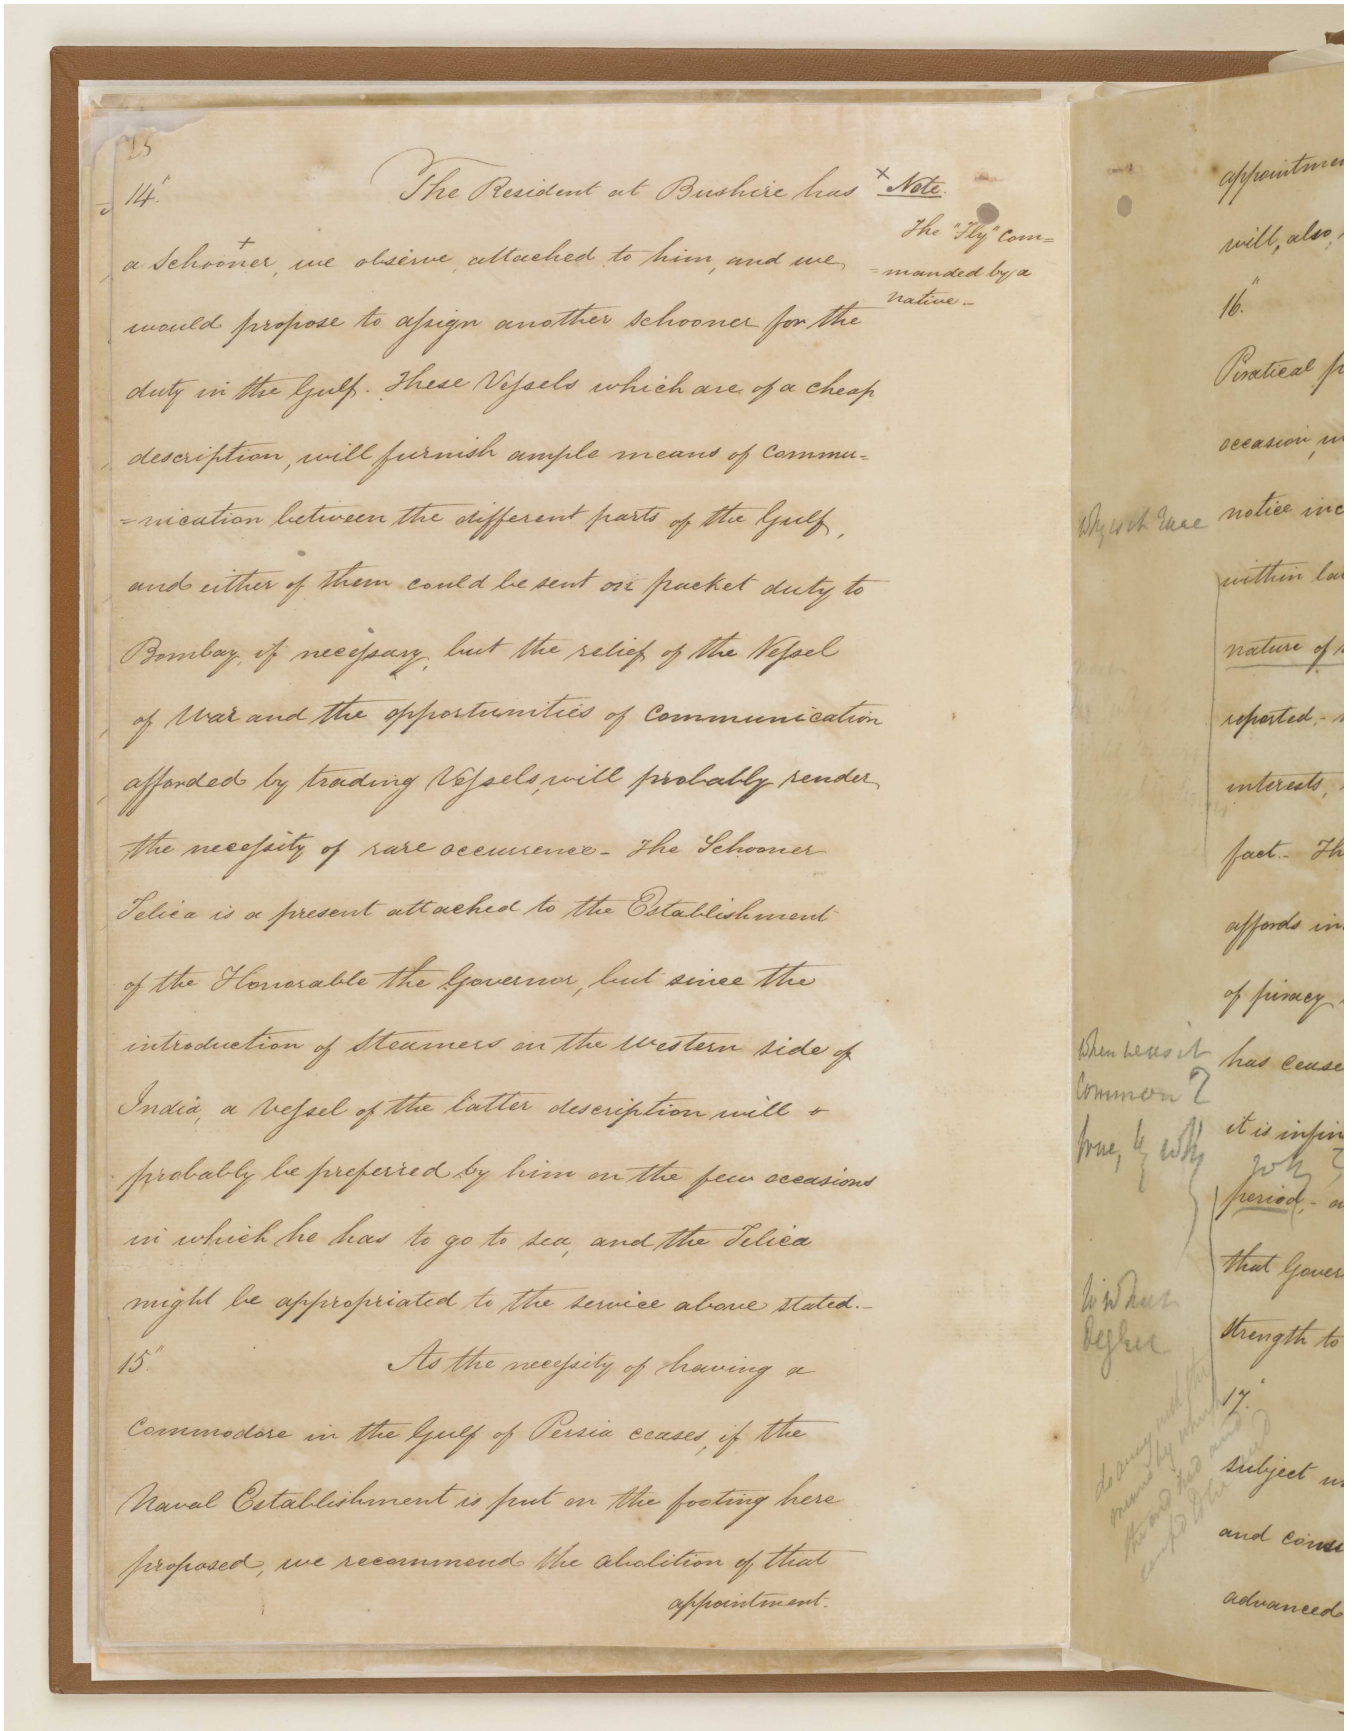 14.
The Resident at Bushire has
a Schooner, we observe, attached to him, and we
would propose to assign another schooner for the
duty in the Gulf. These Vessels which are of a cheap
description, will furnish ample means of Commu=
=nication between the different parts of the Gulf,
and either of them could be sent on packet duty to
Bombay, if necessary, but the relief of the Vessel
of War and the opportunities of Communication
afforded by trading Vessels, will probably render
the necessity of rare occurrence - The Schooner
Telica is a present attached to the Establishment
of the Honorable the Governor, but since the
introduction of Steamers on the Western side of
India, a vessel of the latter description will
probably be preferred by him on the few occasions
in which he has to go to sea, and the Telica
might be appropriated to the service above stated.-
15.
As the necessity of having a
Commodore in the Gulf of Persia ceases, if the
Naval Establishment is put on the footing here
proposed, we recommend the abolition of that
appointment.
x Note.
The "Fly" com=
=manded by a
native -
will, also,
16.
Piratical
occasion
notice
within
nature of
reported,-
interests,
fact.- Th
affords
of piracy
has cease
it is infin
period,-
that Gover
strength to
17.
subject
and
advanced
When was it
Common?
To what
degree